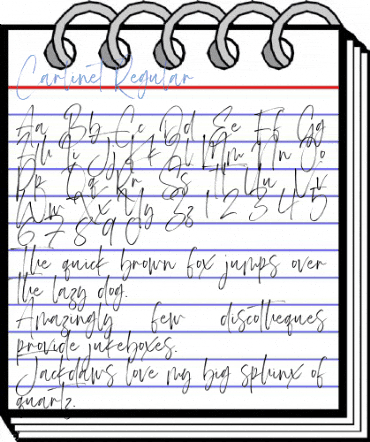 Carlinet Regular
Aa Bb Cc Dd Ee Ff Gg
Hh Ii Jj Kk Ll Mm Nn Oo
Pp Qq Rr Ss Tt Uu Vv
Ww Xx Yy Zz 1 2 3 4 5
6 7 8 9 0
The quick brown fox jumps over
the lazy dog.
Amazingly few discotheques
provide jukeboxes.
Jackdaws love my big sphinx of
quartz.